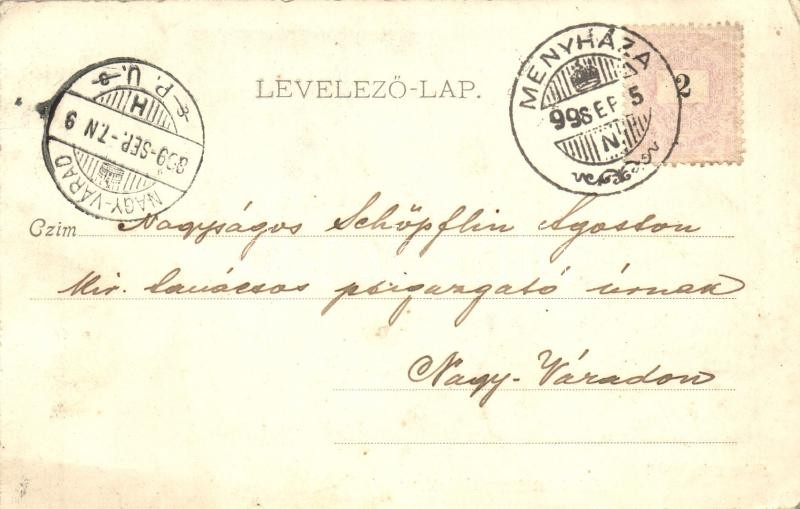 LEVELEZŐ-LAP.
MENYHÁZA
99 SEP 5
N.
2
NAGY-VÁRAD
899-SEP.-7.N 9
H
P. U.
Czim Nagyságos Schöpflin Ágoston
kir. tanácsos főigazgató úrnak
Nagy-Váradon